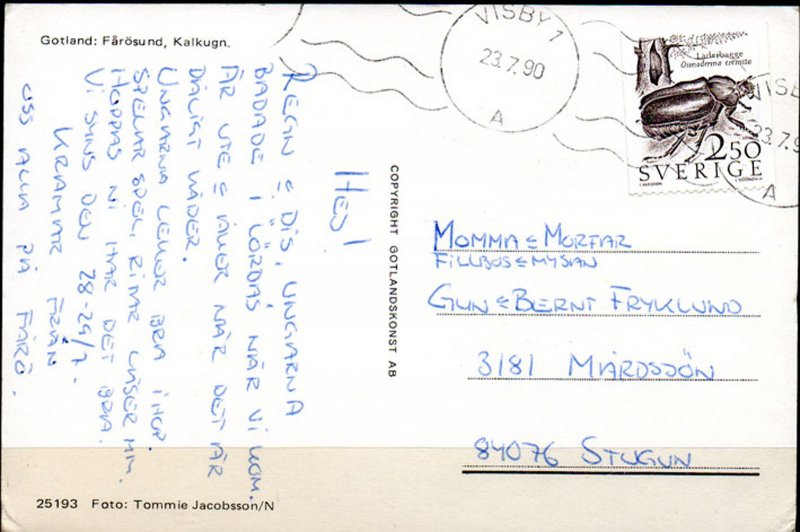 Gotland: Fårösund, Kalkugn.
HEJ!
REGN & DIS, UNGARNA
BADADE I LÖRDAS NÄR VI KOM.
ÄR UTE & ÅKER NÄR DET ÄR
DÅLIGT VÄDER.
UNGARNA LEKER BRA IHOP.
SPELAR SPEL, RITAR LÄSER MM.
HOPPAS NI HAR DET BRA.
VI SYNS DEN 28-29/7.
KRAMAR FRÅN
OSS ALLA PÅ FÅRÖ.
25193 Foto: Tommie Jacobsson/N
COPYRIGHT GOTLANDSKONST AB
VISBY 1
23.7.90
A
Läderbagge
Osmoderma eremita
2.50
SVERIGE
VISB
23.7.9
A
MOMMA & MORFAR
FILLBOS & MYSAN
GUN & BERNT FRYKLUND
3181 MÅRDSJÖN
84076 STUGUN